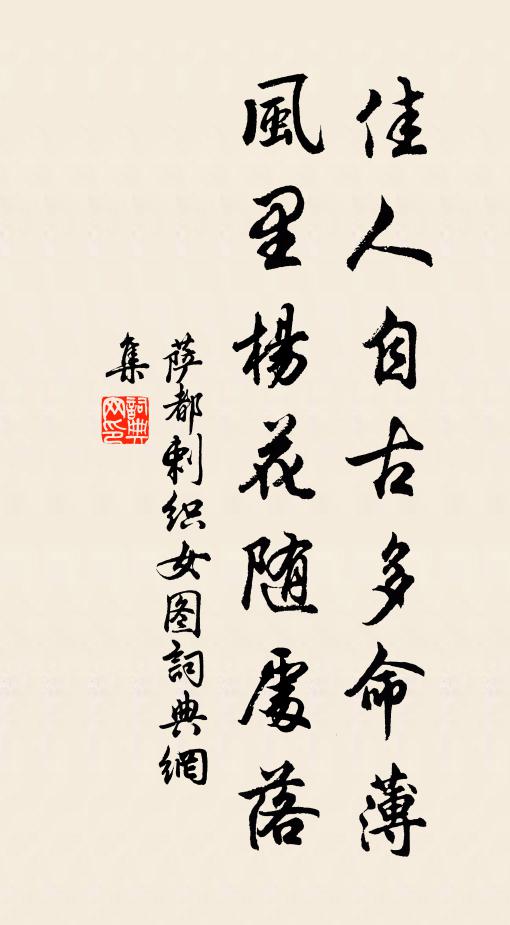 佳人自古多命薄
風里楊花随處落
薩都剌织女图詞典網
集
詞典网印